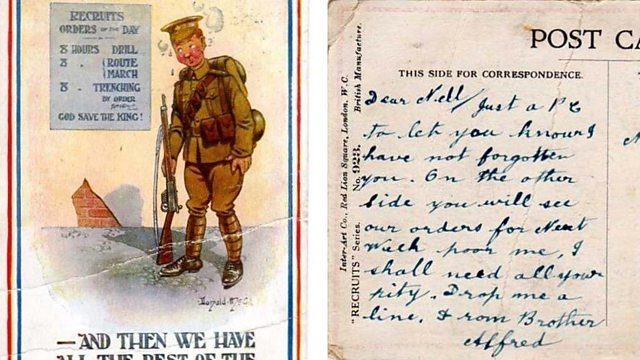 RECRUITS
ORDERS OF THE DAY
8 HOURS DRILL
8 " ROUTE
MARCH
8 " TRENCHING
BY ORDER
GOD SAVE THE KING!
Donald McGill
—AND THEN WE HAVE
ALL THE REST OF THE
POST CA
THIS SIDE FOR CORRESPONDENCE.
Inter-Art Co., Red Lion Square, London, W.C.
British Manufacture.
"RECRUITS" Series. No. 923.
Dear Nell/Just a PC
to let you know I
have not forgotten
you. On the other
side you will see
our orders for Next
Week poor me, I
shall need all your
pity. Drop me a
line. From Brother
Alfred